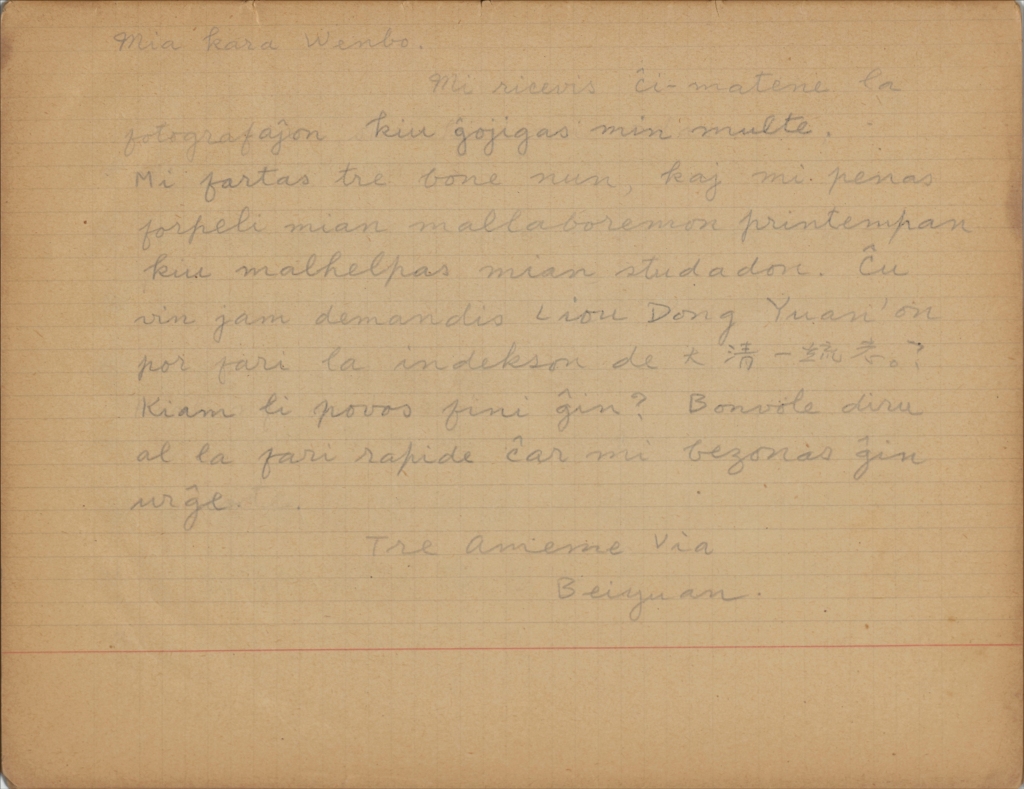 Mia kara Wenbo.
Mi ricevis ĉi-matene la
fotografaĵon kiu ĝojigas min multe.
Mi fartas tre bone nun, kaj mi penas
forpeli mian mallaboremon printempan
kiu malhelpas mian studadon. Ĉu
vin jam demandis Liou Dong Yuan'on
por fari la indekson de 大清一統志。?
Kiam li povos fini ĝin? Bonvole diru
al la fari rapide ĉar mi bezonas ĝin
urĝe.
Tre Ameme Via
Beiyuan.